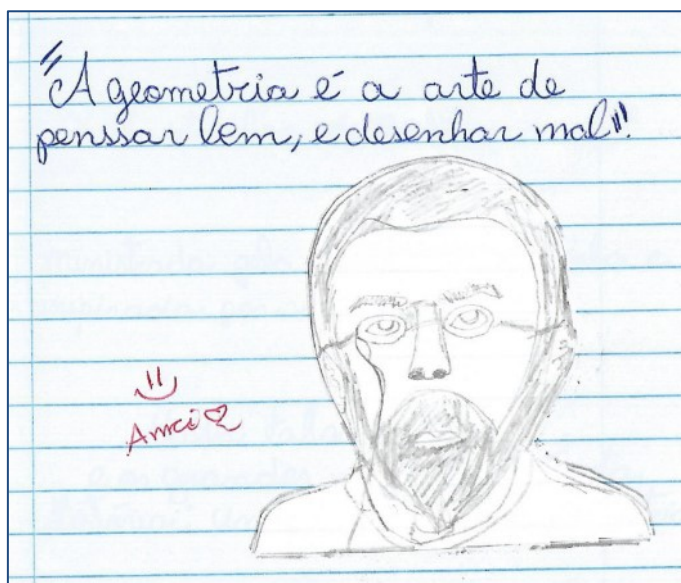 "A geometria é a arte de
penssar bem, e desenhar mal".
Amei